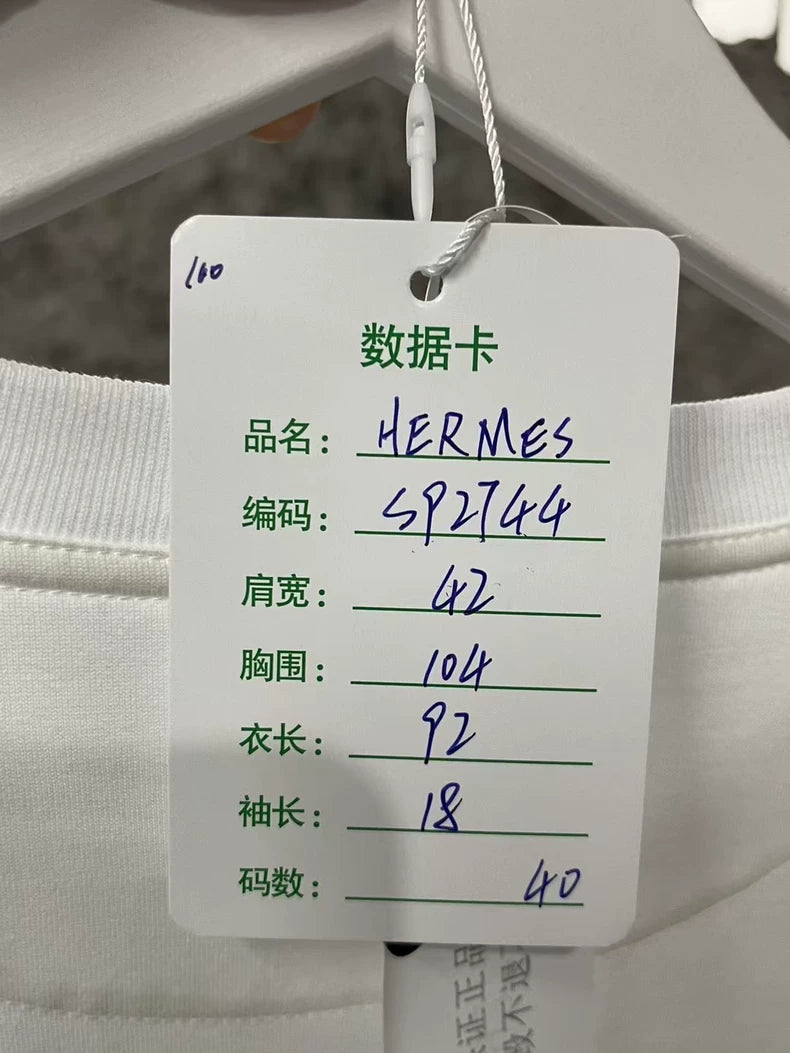 100
数据卡
品名: HERMES
编码: SP2744
肩宽: 42
胸围: 104
衣长: 92
袖长: 18
码数: 40
证正品
不退